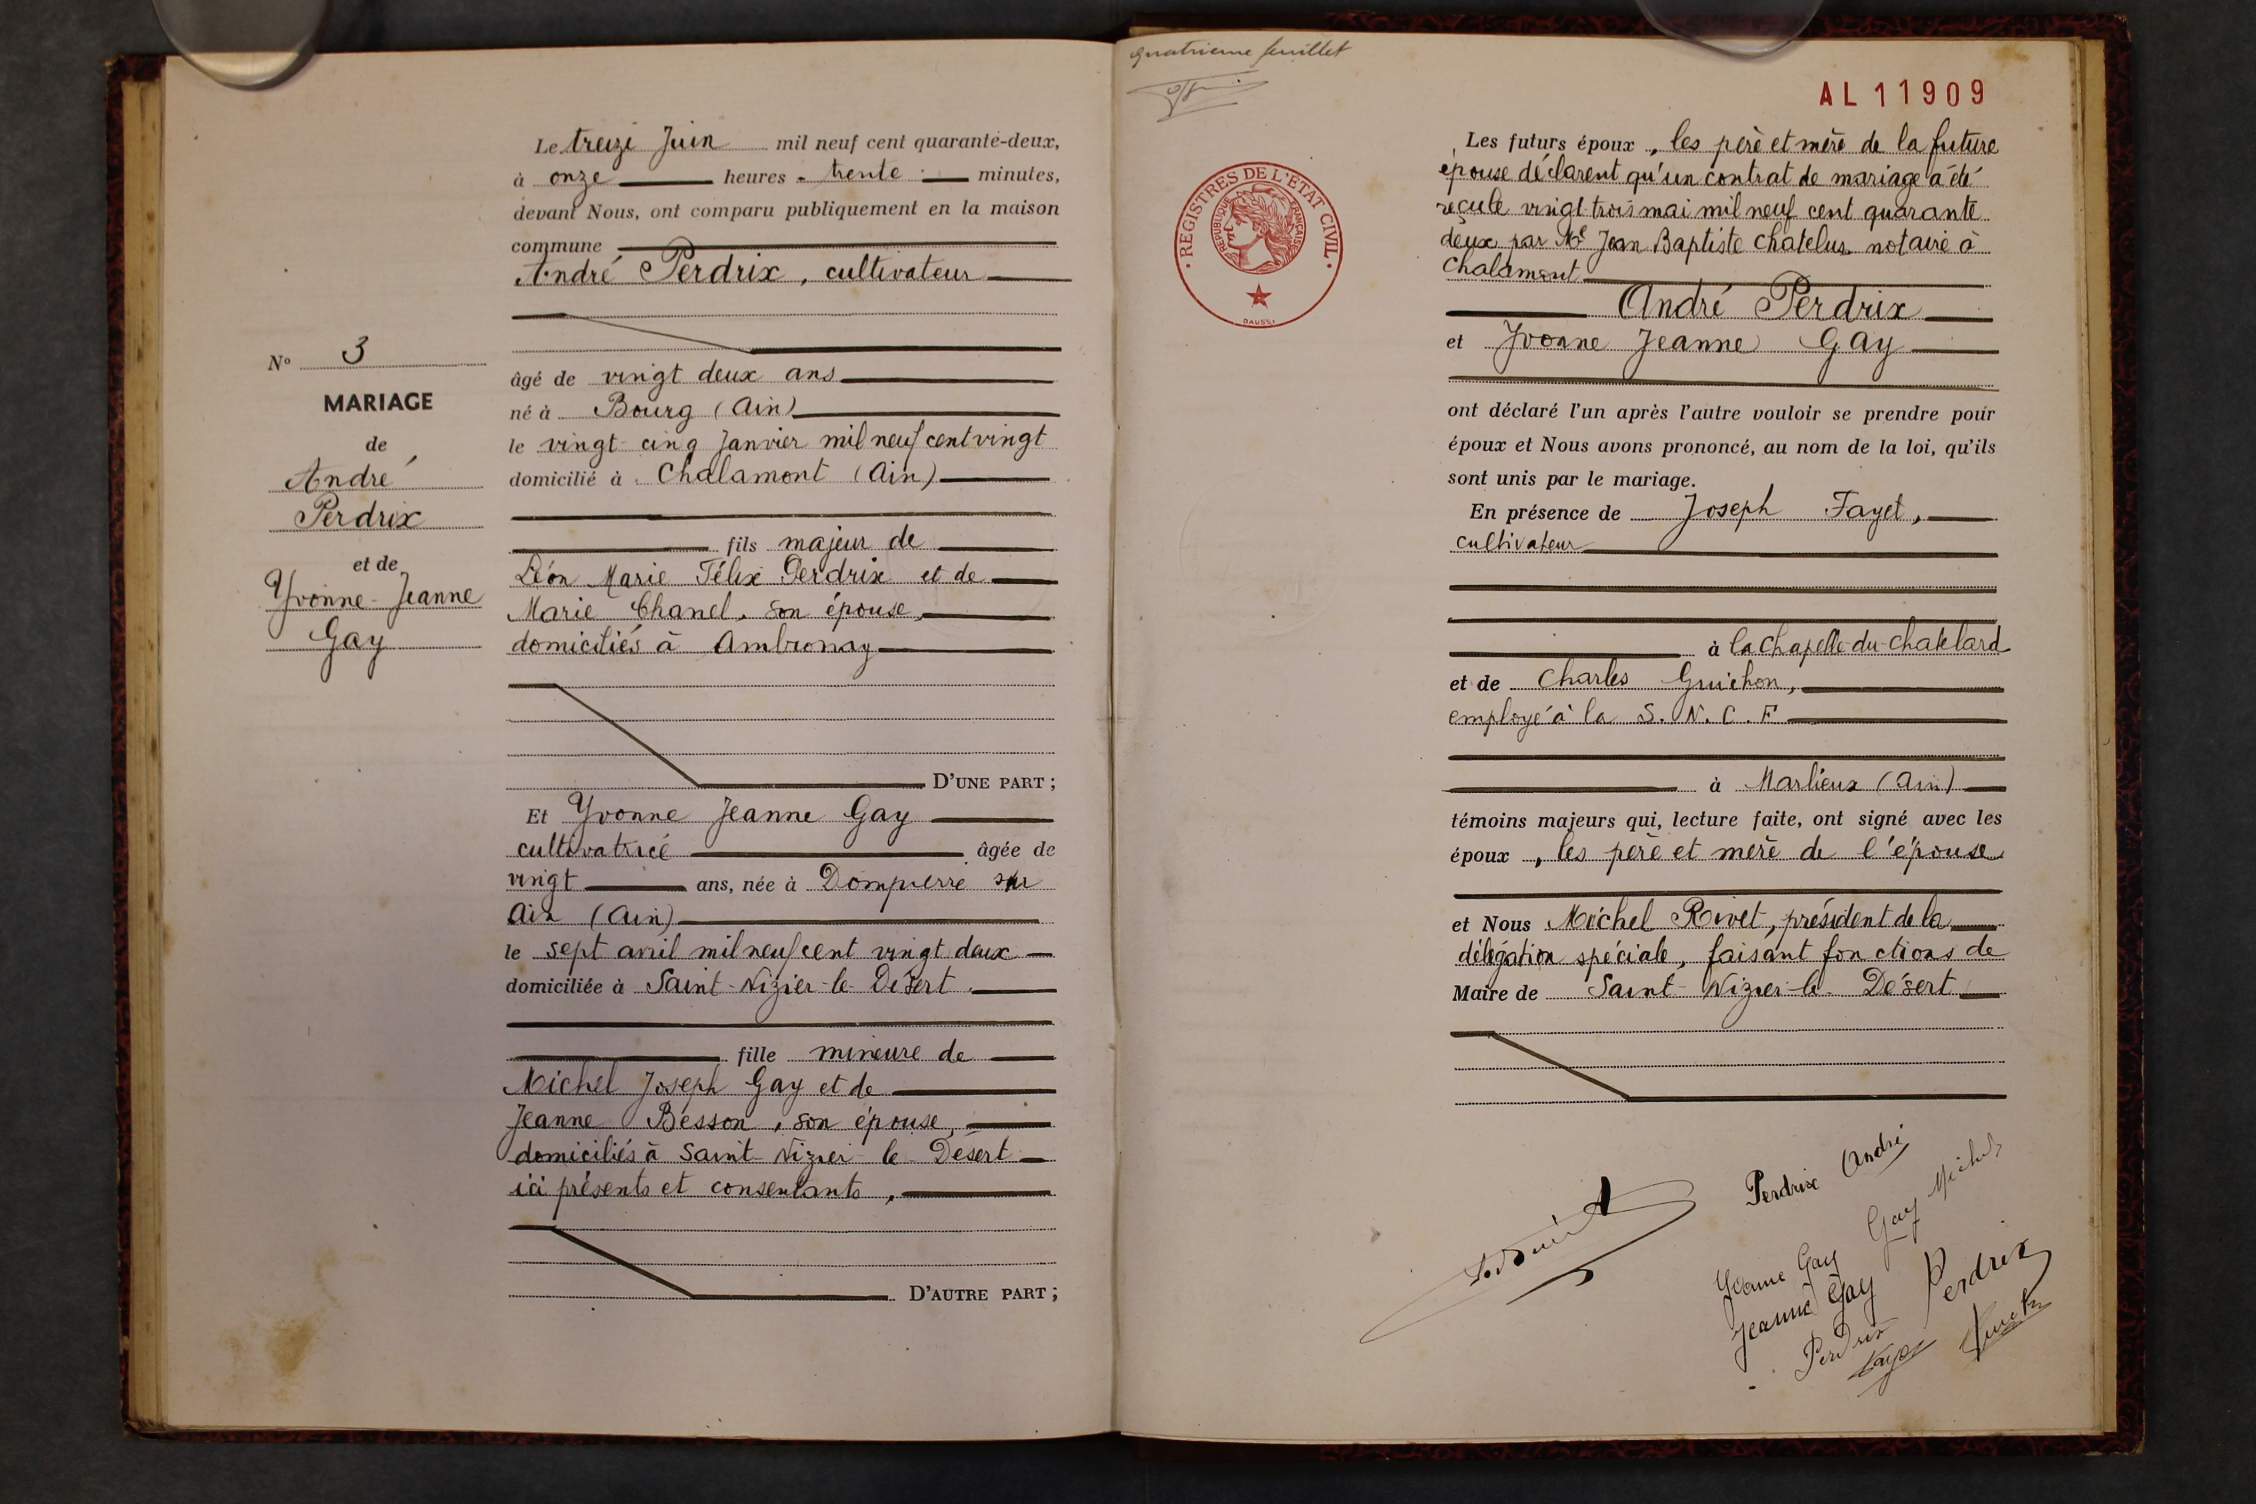 Le treize Juin mil neuf cent quarante-deux,
à onze heures trente minutes,
devant Nous, ont comparu publiquement en la maison
commune
André Perdrix, cultivateur
âgé de vingt deux ans
né à Bourg (Ain)
le vingt-cinq Janvier mil neuf cent vingt
domicilié à Chalamont (Ain)
fils majeur de
Léon Marie Félix Perdrix et de
Marie Chanel, son épouse,
domiciliés à Ambronay
D'UNE PART ;
Et Yvonne Jeanne Gay
cultivatrice âgée de
vingt ans, née à Dompierre sur
Ain (Ain)
le sept avril mil neuf cent vingt deux
domiciliée à Saint-Nizier-le-Désert.
fille mineure de
Michel Joseph Gay et de
Jeanne Besson, son épouse,
domiciliés à Saint-Nizier-le-Désert
ici présents et consentants,
D'AUTRE PART ;
N° 3
MARIAGE
de
André
Perdrix
et de
Yvonne-Jeanne
Gay
quatrieme feuillet
REGISTRES DE L'ÉTAT CIVIL
RÉPUBLIQUE FRANÇAISE
DAUSSY
AL 11909
Les futurs époux, les père et mère de la future
épouse déclarent qu'un contrat de mariage a été
reçu le vingt-trois mai mil neuf cent quarante
deux par Me Jean Baptiste Chatelus notaire à
Chalamont
André Perdrix
et Yvonne Jeanne Gay
ont déclaré l'un après l'autre vouloir se prendre pour
époux et Nous avons prononcé, au nom de la loi, qu'ils
sont unis par le mariage.
En présence de Joseph Fayet,
cultivateur
à la Chapelle-du-Chatelard
et de Charles Guichon,
employé à la S.N.C.F
à Marlieux (Ain)
témoins majeurs qui, lecture faite, ont signé avec les
époux, les père et mère de l'épouse
et Nous Michel Rivet, président de la
délégation spéciale, faisant fonctions de
Maire de Saint-Nizier-le-Désert
Perdrix André
Gay Michel
Yvonne Gay
Jeanne Gay
Perdrix
Perdrix